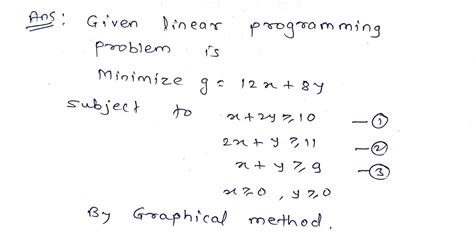 Ans: Given linear programming
problem is
Minimize g = 12x + 8y
subject to x+2y ≥ 10 — ①
2x + y ≥ 11 — ②
x + y ≥ 9 — ③
x ≥ 0 , y ≥ 0
By Graphical method.